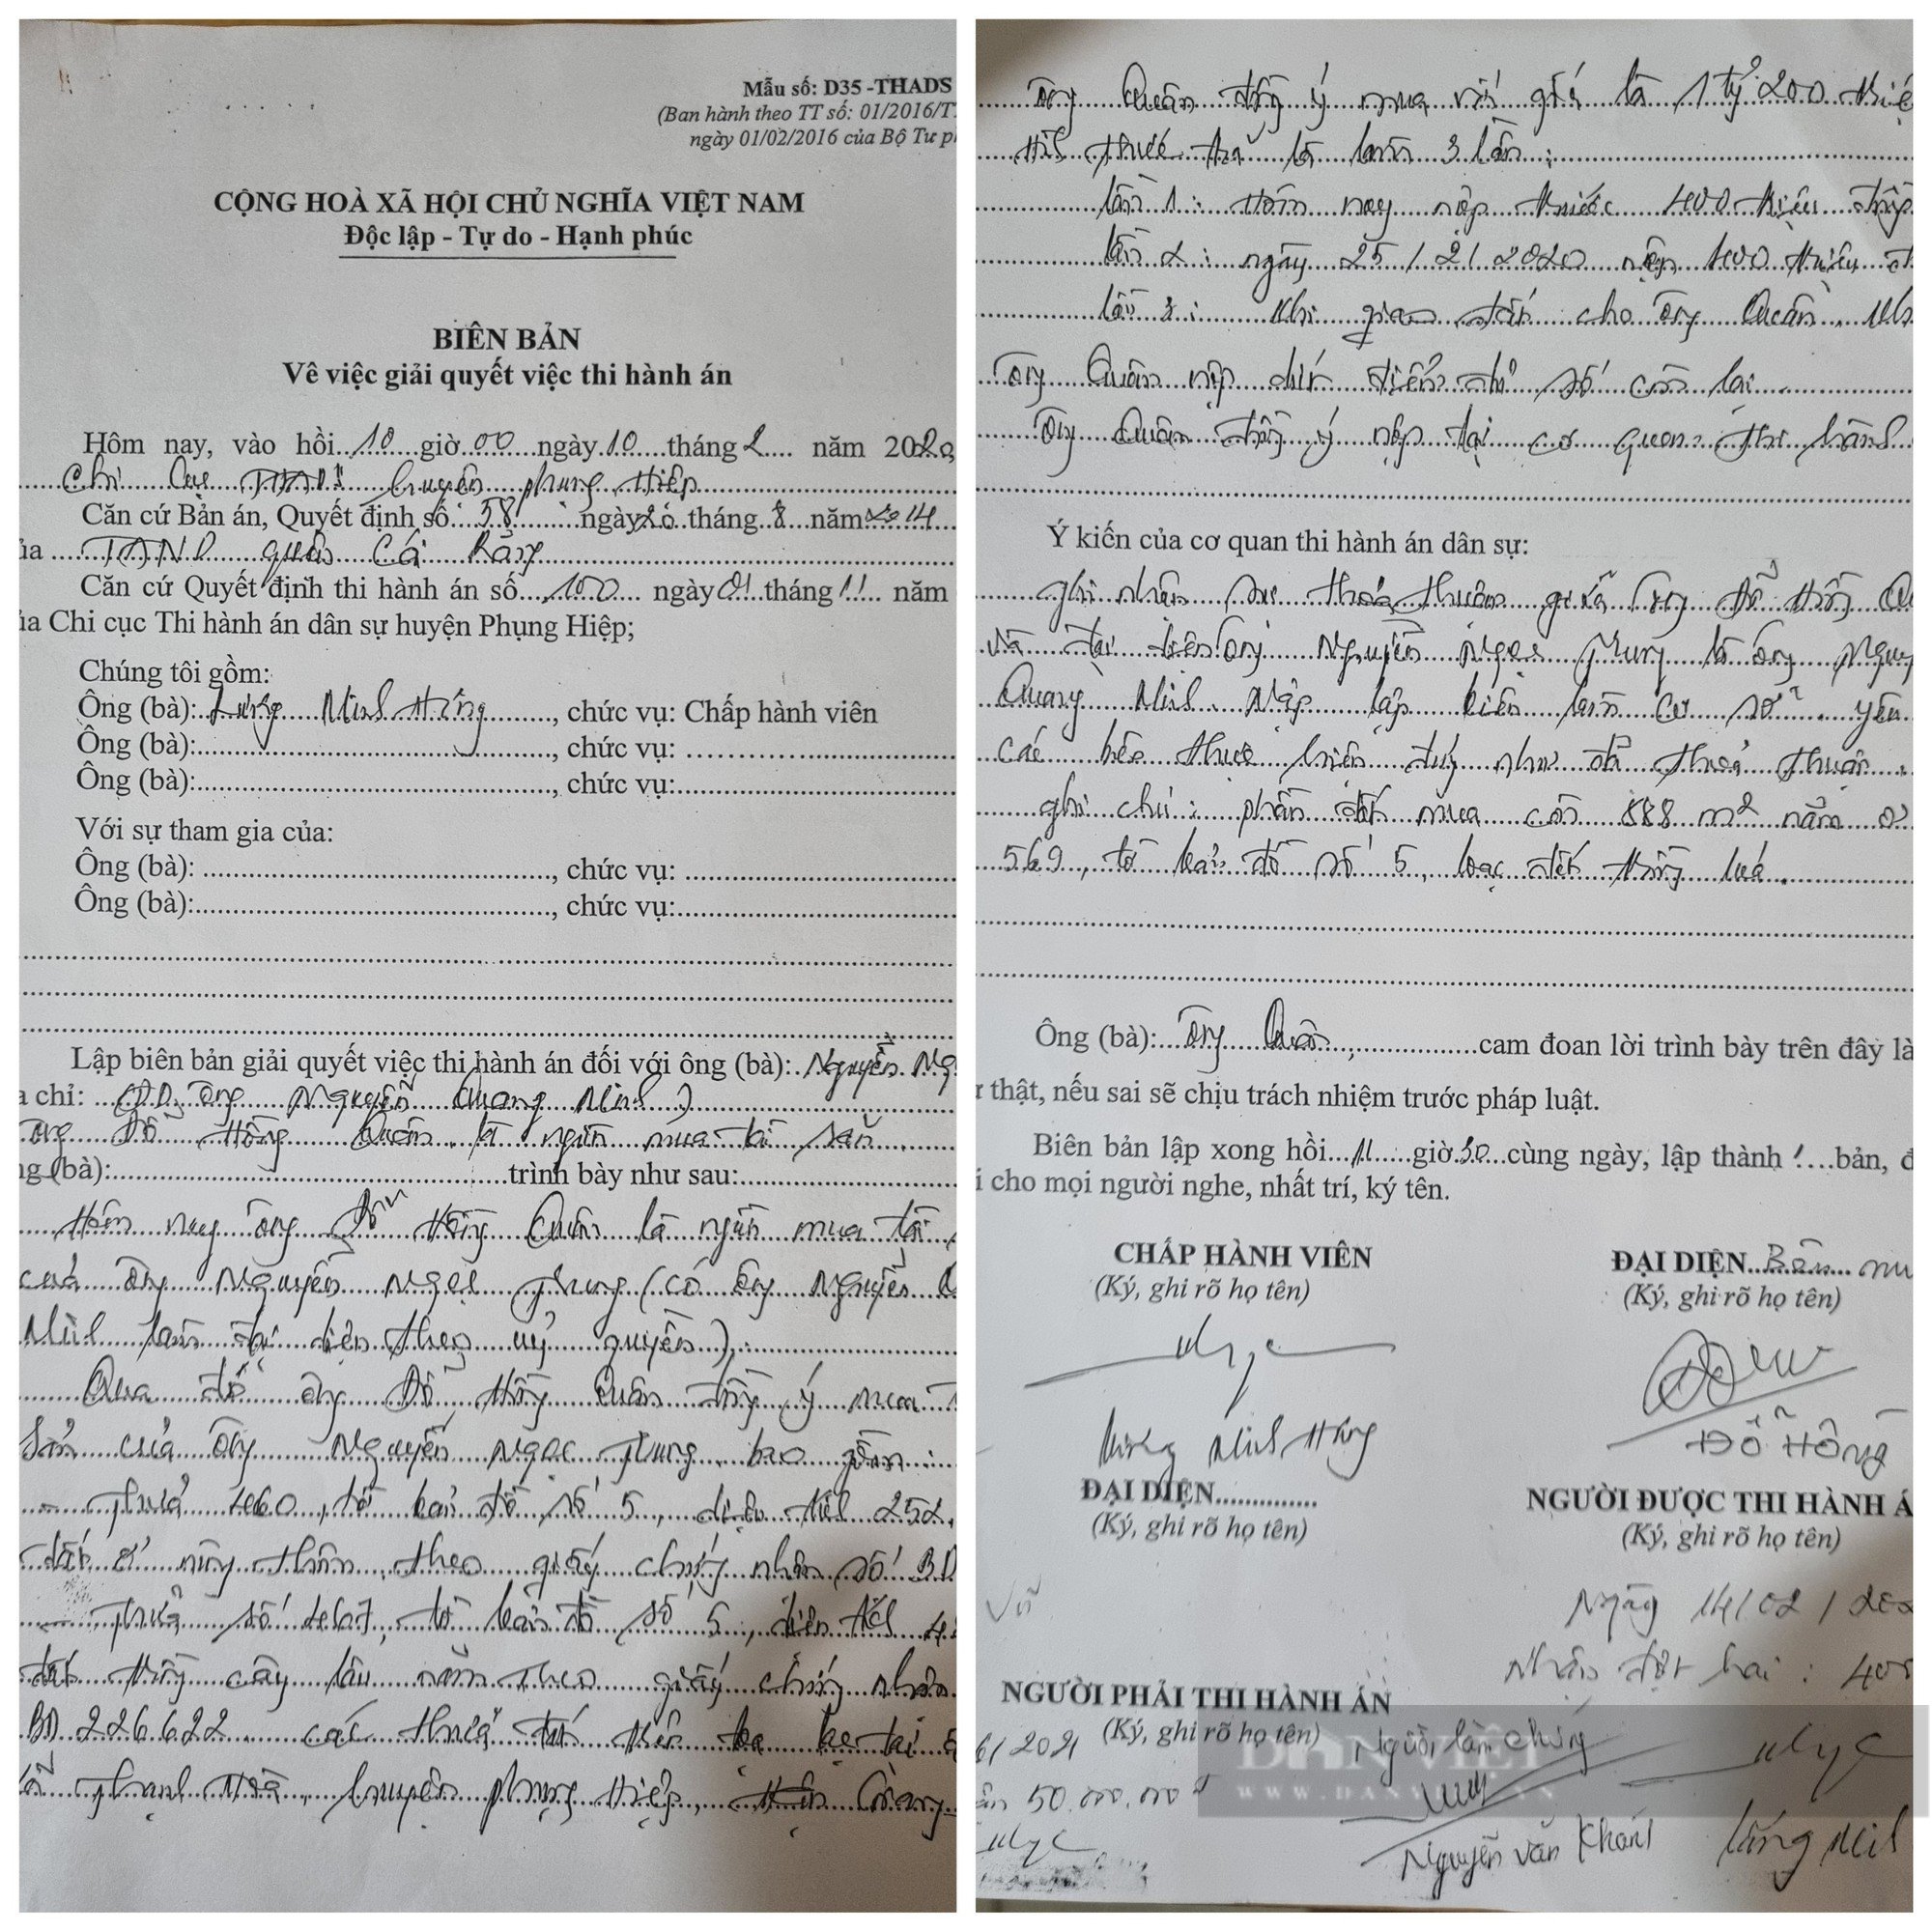 Mẫu số: D35 -THADS
(Ban hành theo TT số: 01/2016/T
ngày 01/02/2016 của Bộ Tư p
CỘNG HOÀ XÃ HỘI CHỦ NGHĨA VIỆT NAM
Độc lập - Tự do - Hạnh phúc
BIÊN BẢN
Về việc giải quyết việc thi hành án
Hôm nay, vào hồi 10 giờ 00 ngày 10 tháng 2 năm 2020,
Chi cục THADS huyện Phụng Hiệp
Căn cứ Bản án, Quyết định số 58 ngày 20 tháng 8 năm 2014
TAND quận Cái Răng
Căn cứ Quyết định thi hành án số 100 ngày 01 tháng 11 năm
Chi cục Thi hành án dân sự huyện Phụng Hiệp;
Chúng tôi gồm:
Ông (bà): Minh Hùng, chức vụ: Chấp hành viên
Ông (bà):, chức vụ:
Ông (bà):, chức vụ:
Với sự tham gia của:
Ông (bà):, chức vụ:
Ông (bà):, chức vụ:
Lập biên bản giải quyết việc thi hành án đối với ông (bà): Nguyễn Ng
chỉ: (ĐD. ông Nguyễn Quang Minh)
Ông Đỗ Hồng Quân là người mua tài sản
(bà): trình bày như sau:
Hôm nay ông Đỗ Hồng Quân là người mua tài
của ông Nguyễn Ngọc Trung (có ông Nguyễn Q
Minh làm đại diện theo uỷ quyền).
Qua đó ông Đỗ Hồng Quân đồng ý mua
sản của ông Nguyễn Ngọc Trung bao gồm:
- Thửa 460, tờ bản đồ số 5, diện tích 252,
đất ở nông thôn, theo giấy chứng nhận số BD
- Thửa số 467, tờ bản đồ số 5, diện tích 4
đất trồng cây lâu năm theo giấy chứng nhận
BD 226622 các thửa đất trên tọa lạc tại
Thạnh Hoà, huyện Phụng Hiệp, Hậu Giang
Ông Quân đồng ý mua với giá là 1 tỷ 200 triệ
Hình thức trả là làm 3 lần:
lần 1: Hôm nay nộp trước 400 triệu đồng
lần 2: ngày 25/2/2020 nộp 400 triệu đ
lần 3: Khi giao đất cho ông Quân,
Ông Quân nộp dứt điểm số còn lại
Ông Quân đồng ý nộp tại cơ quan thi hành
Ý kiến của cơ quan thi hành án dân sự:
ghi nhận sự thoả thuận giữa ông Đỗ Hồng Qu
và đại diện ông Nguyễn Ngọc Trung là ông Nguy
Quang Minh. lập biên bản cơ sở yêu
các bên thực hiện đúng như đã thoả thuận.
ghi chú: phần đất mua còn 888 m2 nằm ở
569, tờ bản đồ số 5, loại đất trồng lúa.
Ông (bà): Ông Quân, cam đoan lời trình bày trên đây là
thật, nếu sai sẽ chịu trách nhiệm trước pháp luật.
Biên bản lập xong hồi 11 giờ 30 cùng ngày, lập thành 1 bản, đ
cho mọi người nghe, nhất trí, ký tên.
CHẤP HÀNH VIÊN
(Ký, ghi rõ họ tên)
ĐẠI DIỆN Bên mu
(Ký, ghi rõ họ tên)
Minh Hùng
Đỗ Hồng
ĐẠI DIỆN
(Ký, ghi rõ họ tên)
NGƯỜI ĐƯỢC THI HÀNH Á
(Ký, ghi rõ họ tên)
Ngày 14/02/202
Nhận đợt hai: 400
NGƯỜI PHẢI THI HÀNH ÁN
(Ký, ghi rõ họ tên)
6/2021
50.000.000đ
Người làm chứng
Nguyễn Văn Khánh
DÂN VIỆT